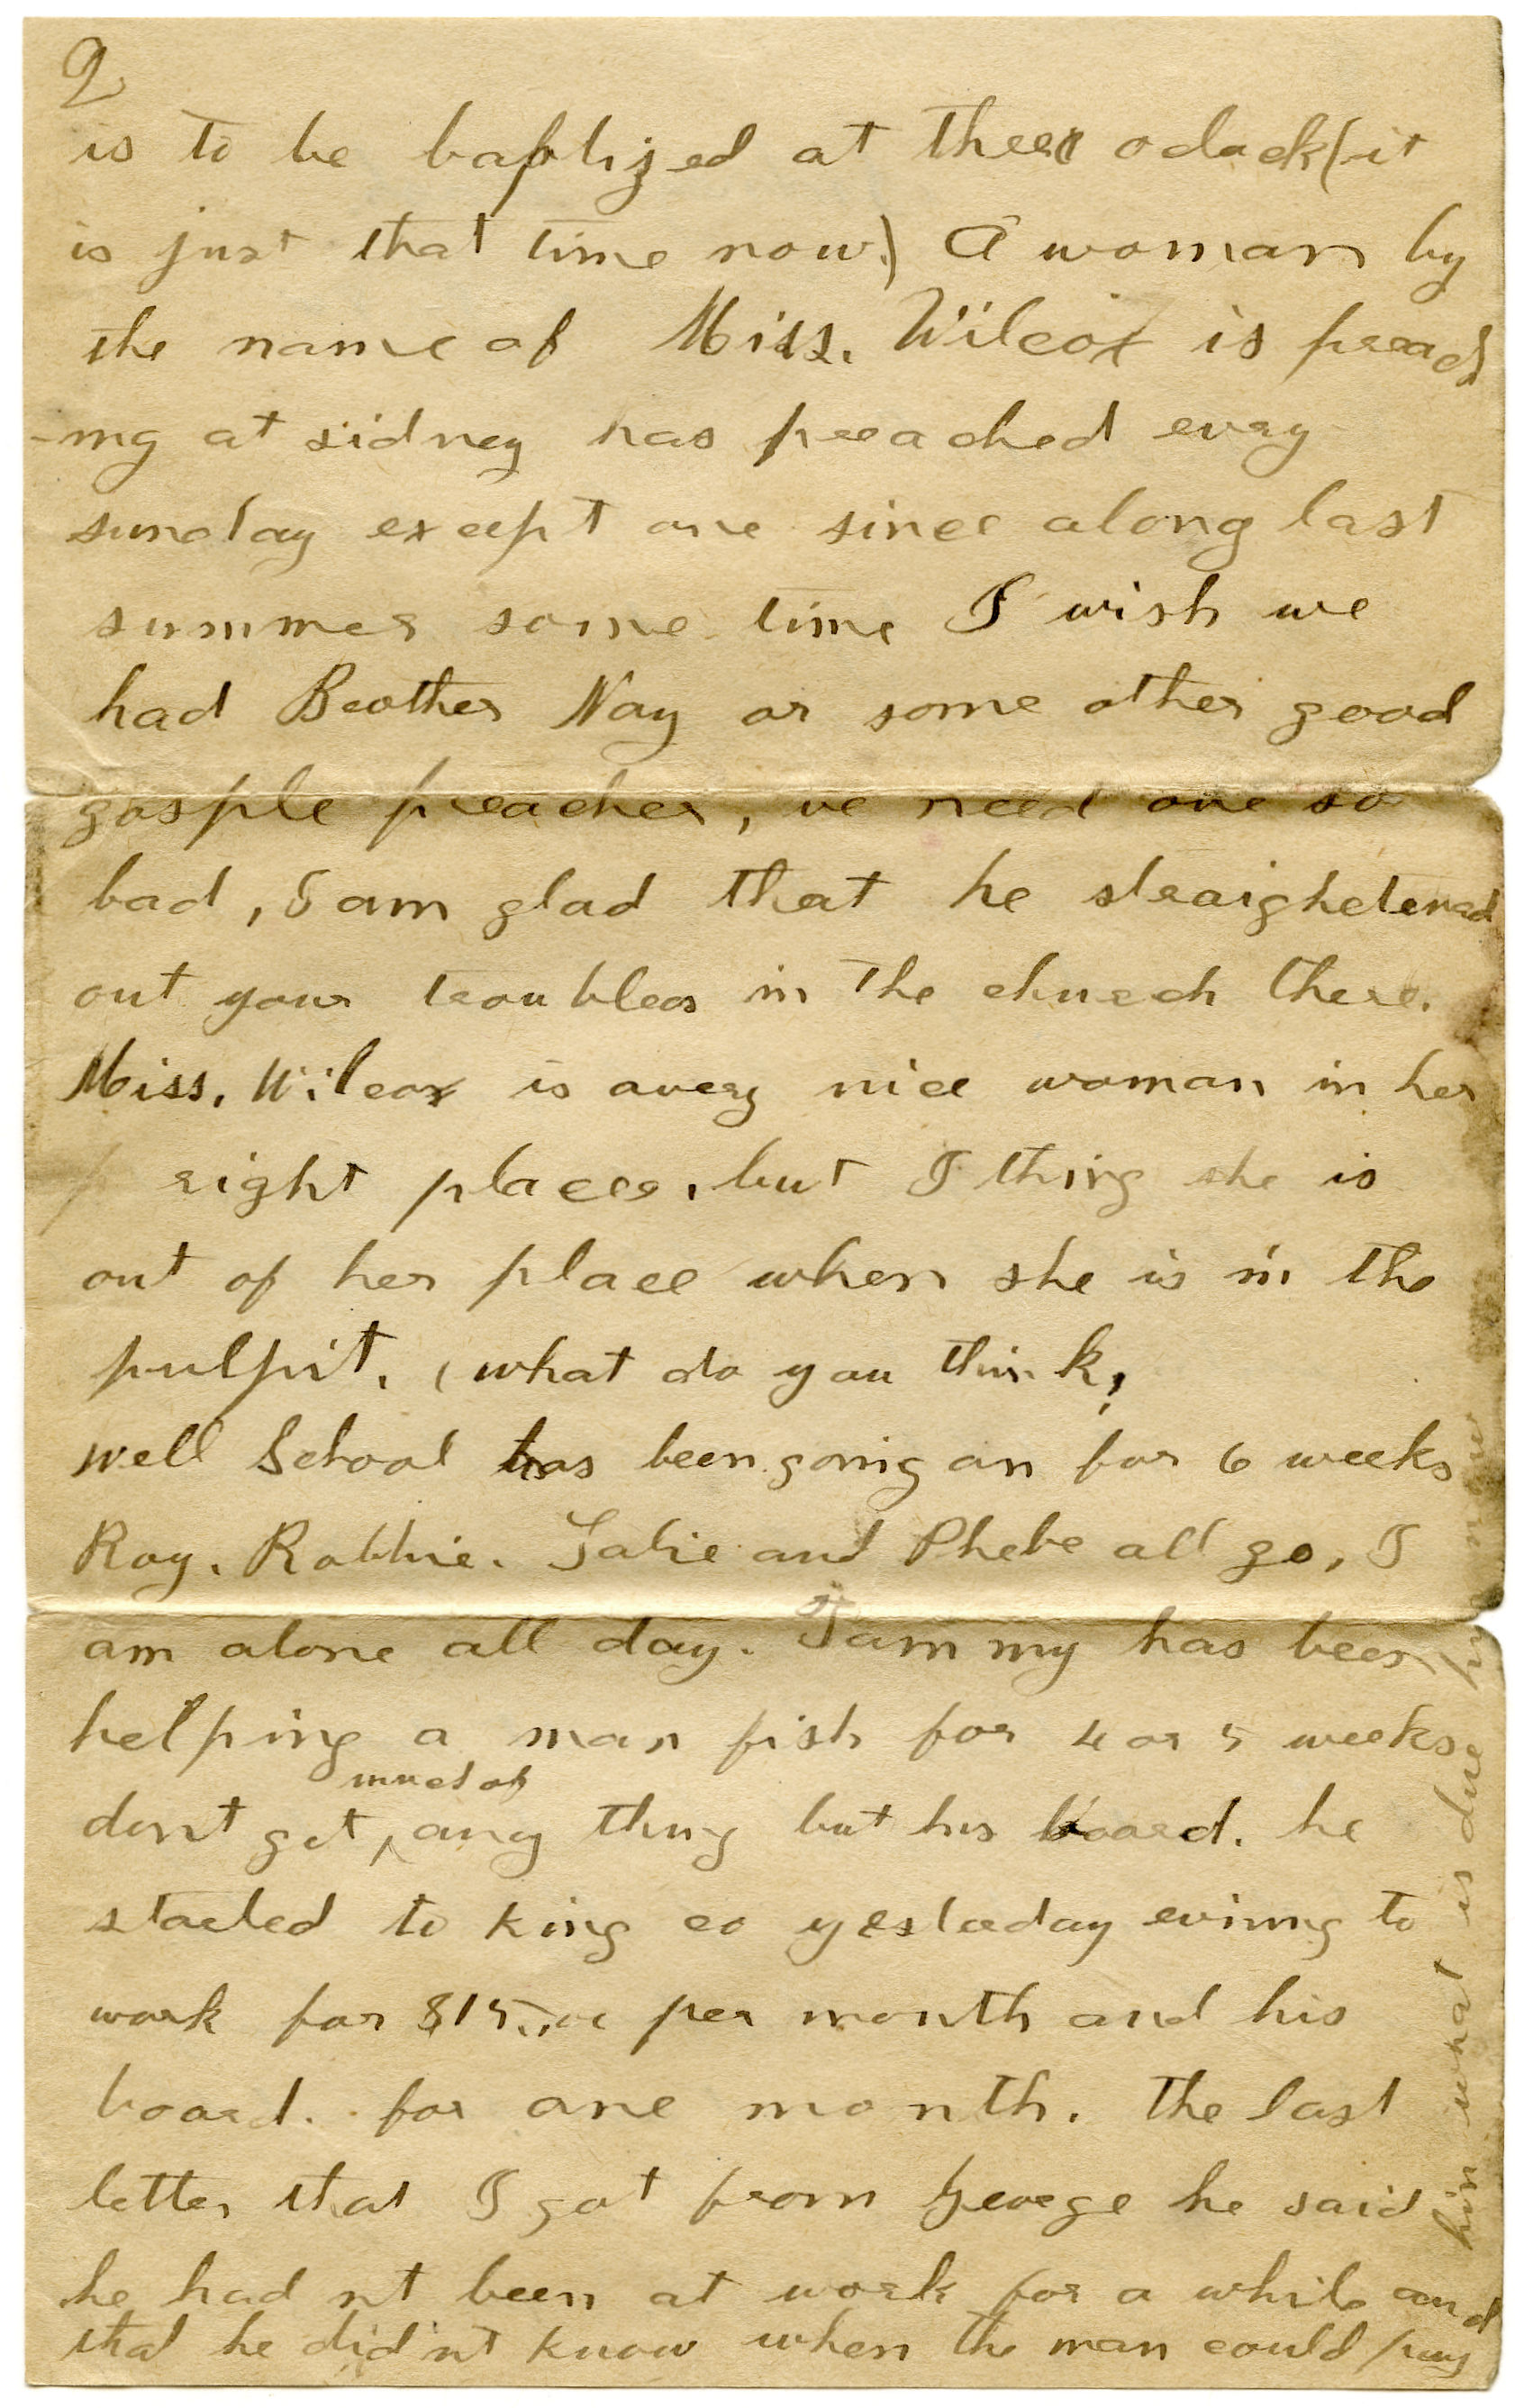 2
is to be baptized at three oclock (it
is just that time now.) A woman by
the name of Miss. Wilcox is preach
-ing at sidney has preached evry
sunday except one since along last
summer some time I wish we
had Brother Nay or some other good
gosple preacher, we need one so
bad, I am glad that he straightened
out your troubles in the church there.
Miss. Wilcox is avery nice woman in her
right places, but I thing she is
out of her place when she is in the
pulpit, (what do you think,
well School has been going on for 6 weeks
Roy. Robbie. and Phebe all go, I
am alone all day. Tammy has been
helping a man fish for 4 or 5 weeks
dont get much of any thing but his board. he
started to King co yesterday evining to
work for $15.00 per month and his
board. for one month. The last
letter that I got from George he said
he had nt been at work for a while and
that he did nt know when the man could pay
him what is due him now